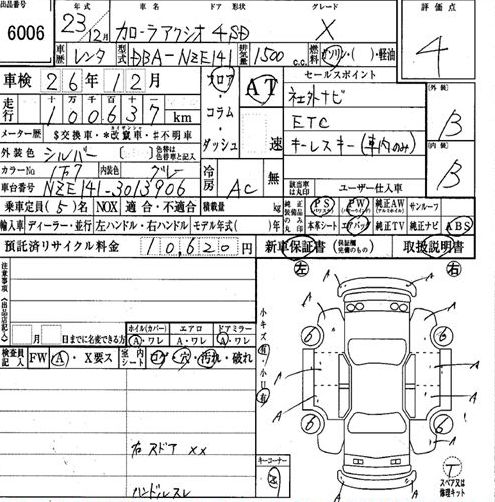 出品番号 年式 車名 ドア 形状 グレード 評価点
6006 23年12月 カローラアクシオ 4SD X 4
車歴 レンタ 型式 DBA-NZE141 排気量 1500 c.c. 燃料 ガソリン・( )・軽油
車検 26年12月 フロア・コラム・ダッシュ AT 速 セールスポイント
走行 十万千百十 100637 km 社外ナビ 外装 B
メーター歴 $交換車・*改竄車・#不明車 ETC
外装色 シルバー ( ) 色替は色替車と記入 キーレスキー(車内のみ) 内装 B
カラーNo 1F7 内装色 グレー 冷房 AC 無
車台番号 NZE141-3013906 該当車は丸印 ユーザー仕入車
乗車定員 (5)名 NOX 適合・不適合 積載量 kg 純正装備品のみ丸印 PS PW 純正AW サンルーフ
輸入車 ディーラー・並行 左ハンドル・右ハンドル モデル年式( )年 本革シート エアバッグ 純正TV 純正ナビ ABS
預託済リサイクル料金 10,620円 新車保証書 取扱説明書
注意事項(出品店記入) 左 右
月 日までに名変できる方 ホイル(カバー) エアロ ドアミラー
A・ワレ A・ワレ A・ワレ
検査員記入 FW A・X要ス 室内 シート コゲ・穴・汚れ・破れ
小キズ有・小凹有
A A A A A A A
6 6 6 6
右ステア XX
ハンドルスレ
キーコーナー
T スペア又は修理キット